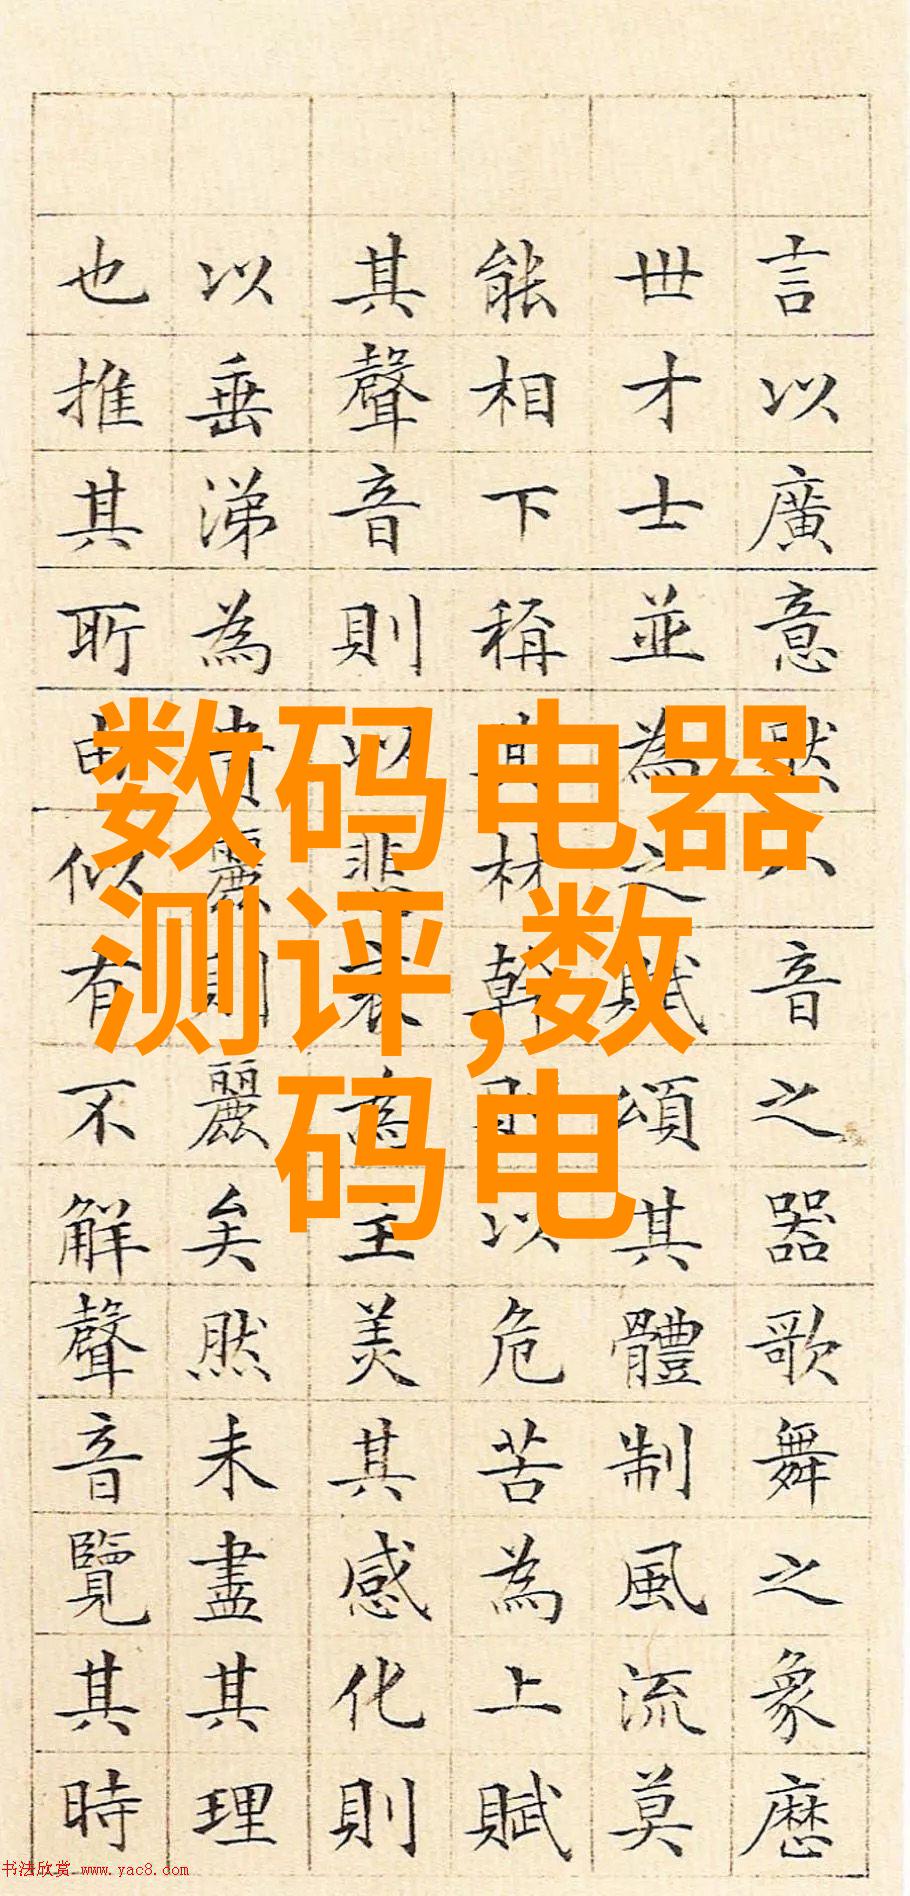 言以廣意然八音之器歌舞之象歷
世才士並為之賦頌其體制風流莫
能相下稱其材幹則以危苦為上賦
其聲音則以悲哀為主美其感化則
以垂涕為貴麗則麗矣然未盡其理
也推其所由似有不解聲音覽其時
数码电器
测评,数
码电
书法欣赏 www.yac8.com